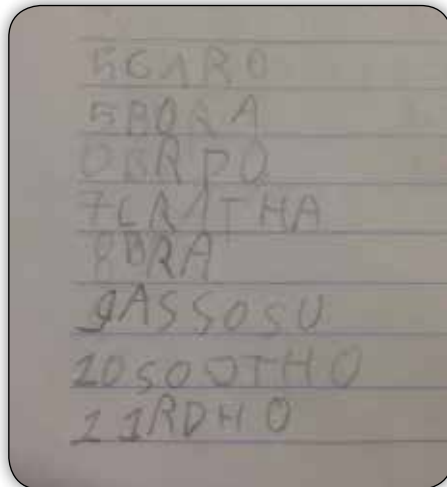 5CARO
5BORA
7CRATHA
8BRA
9ASSOSU
10SOOTHO
11RDHO